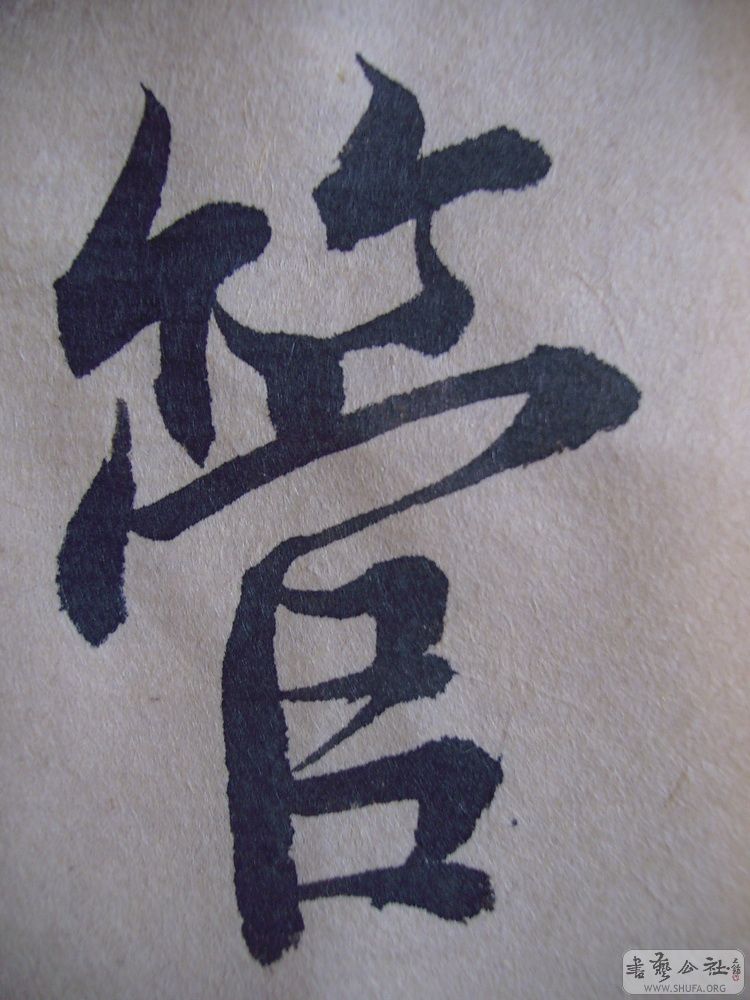 管
書艺公社
WWW.SHUFA.ORG